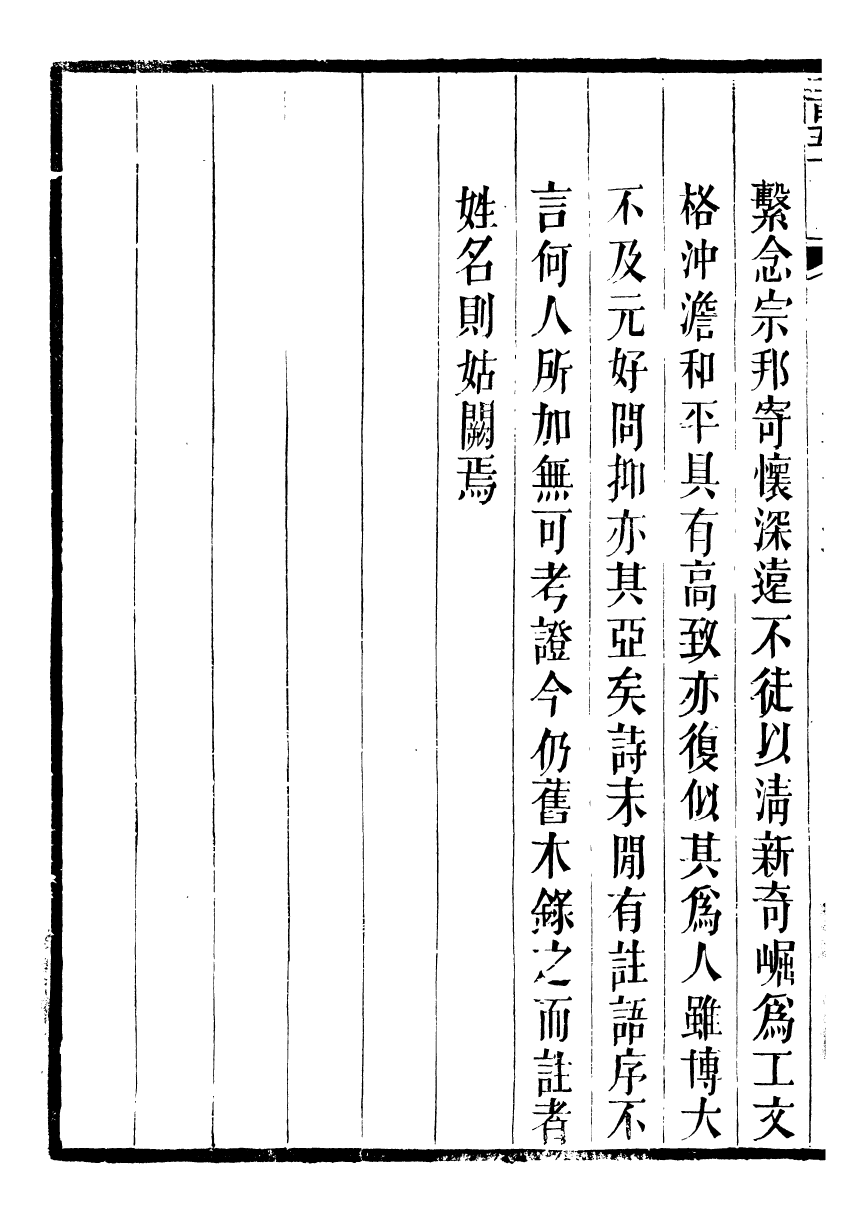 繫念宗邦寄懷深遠不徒以清新奇崛爲工文
格沖澹和平具有高致亦復似其爲人雖博大
不及元好問抑亦其亞矣詩未閒有註語序不
言何人所加無可考證今仍舊木錄之而註者
姓名則姑闕焉